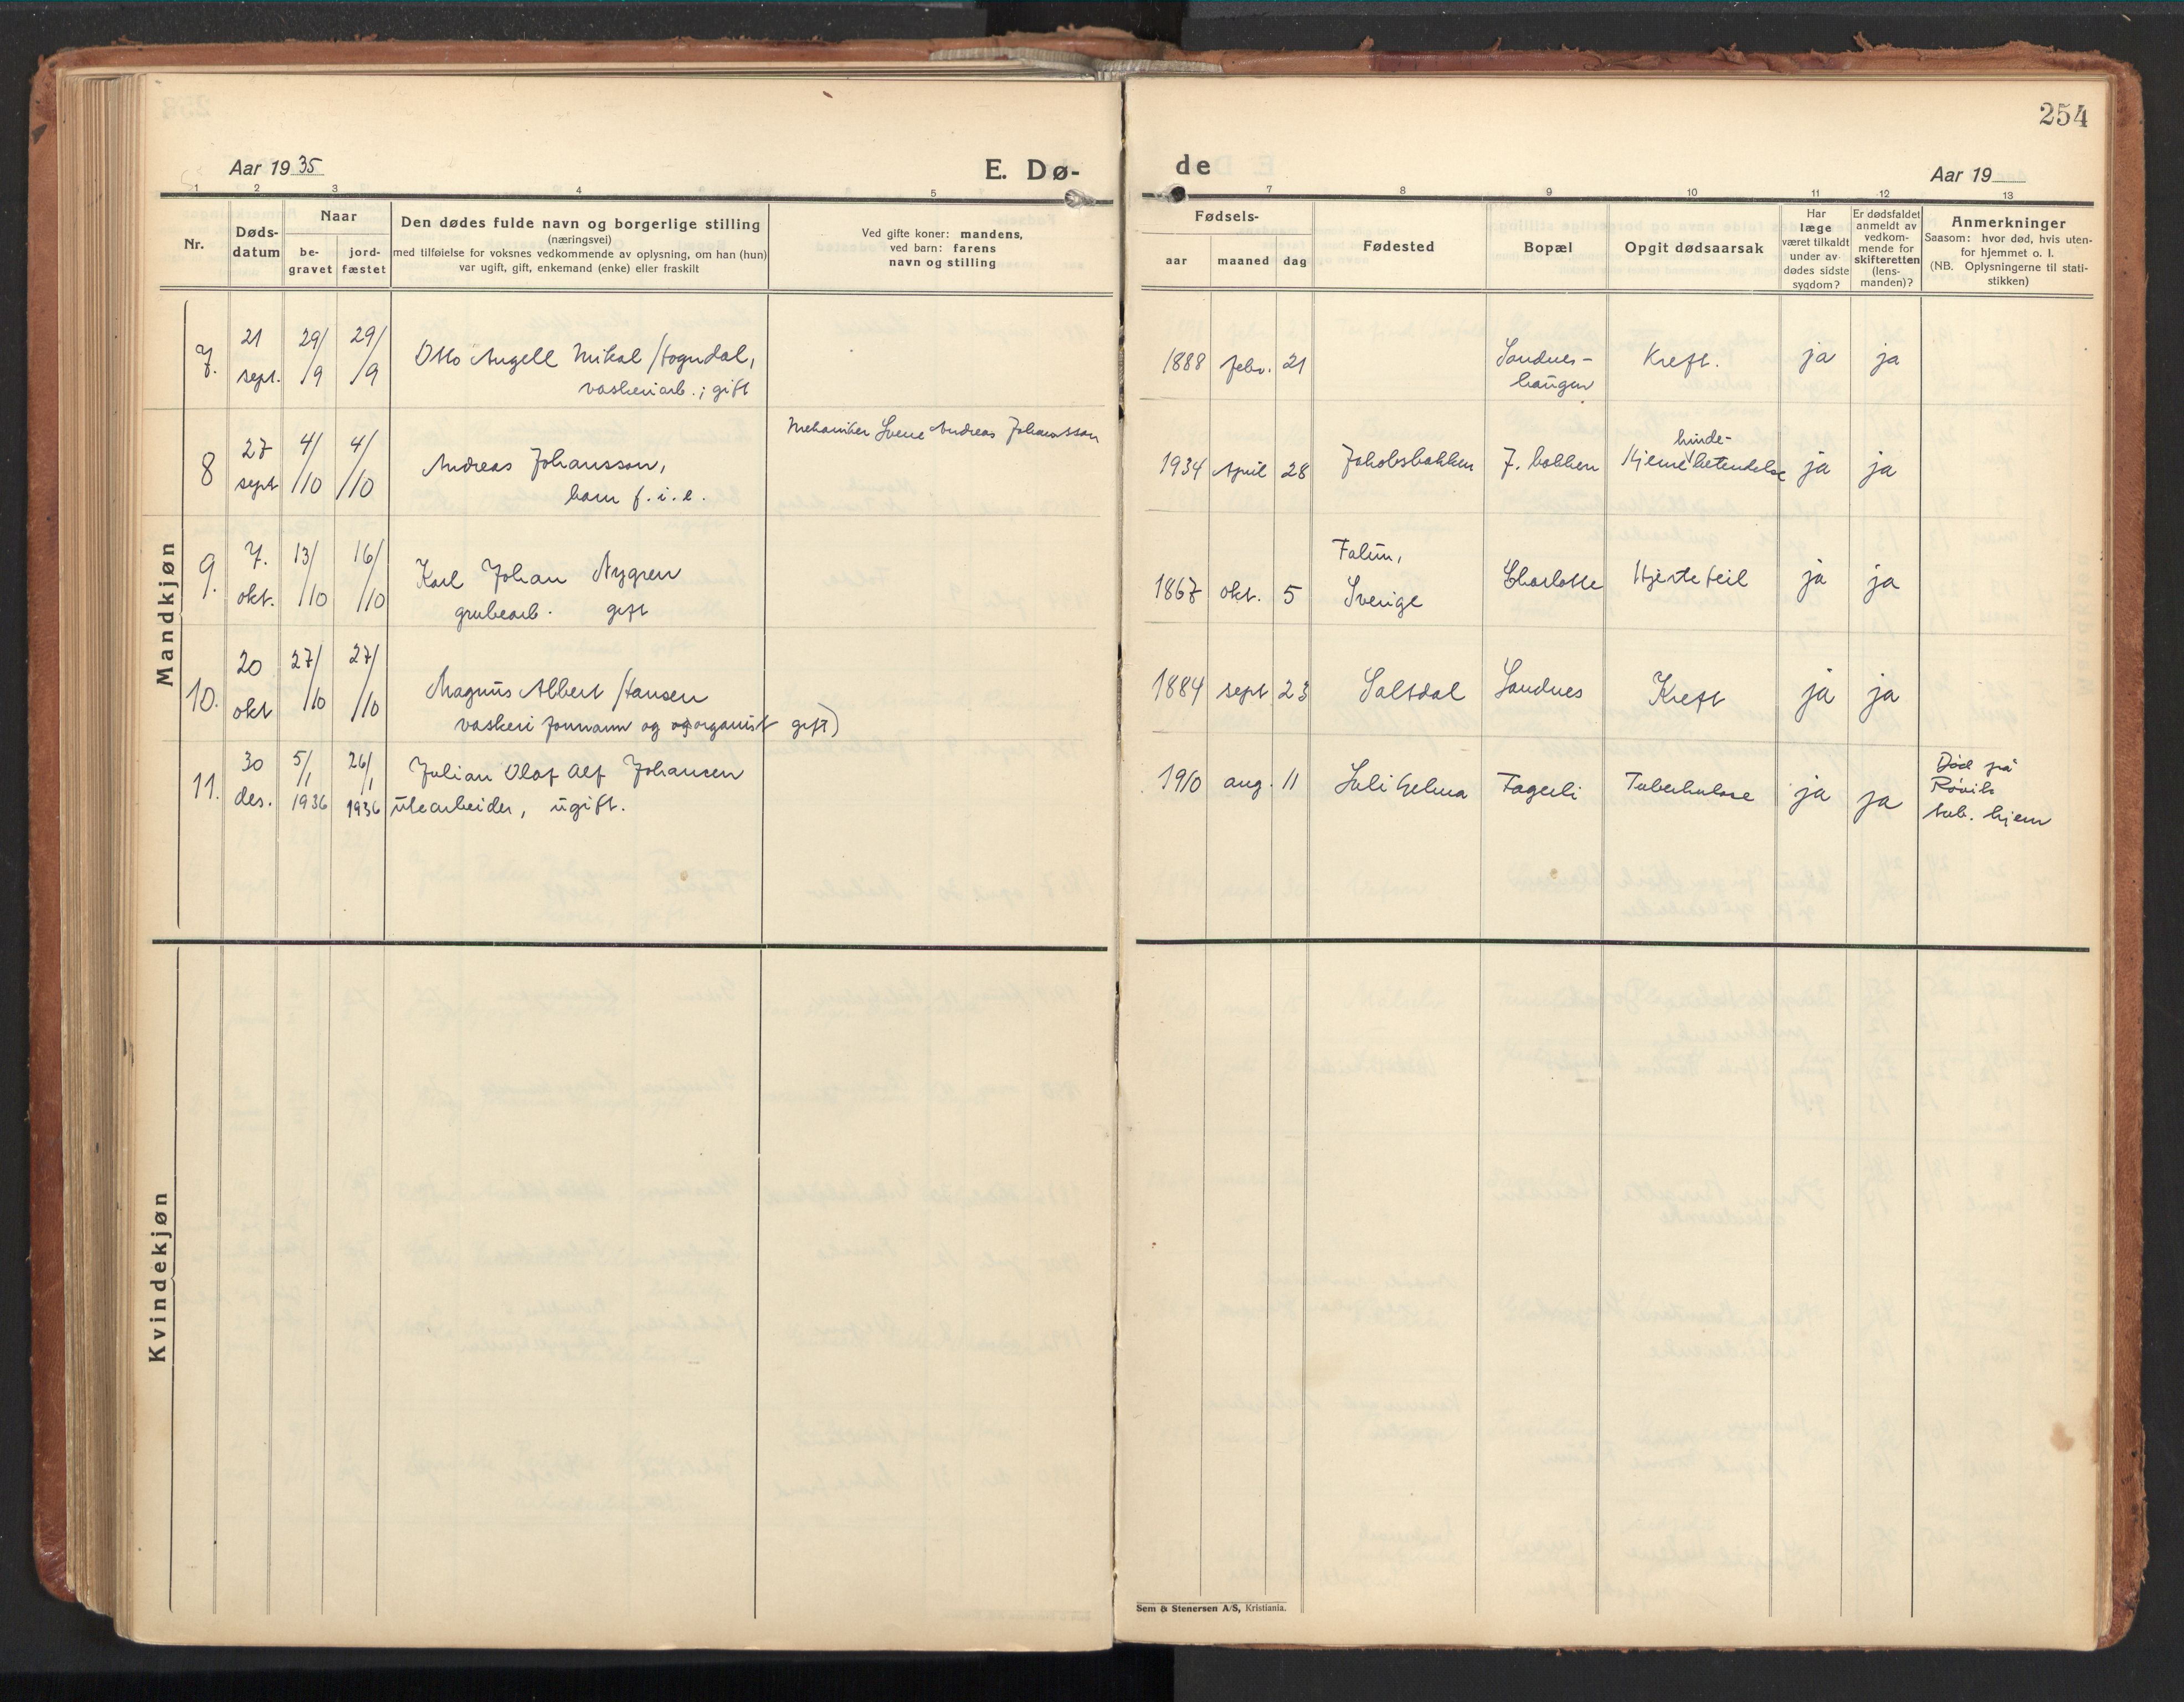 254
Aar 1935
E. Dø-
de
Aar 19
1 2 3 4 5
7 8 9 10 11 12 13
Nr.
Døds-
datum
Naar
be-
gravet
jord-
fæstet
Den dødes fulde navn og borgerlige stilling
(næringsvei)
med tilføielse for voksnes vedkommende av oplysning, om han (hun)
var ugift, gift, enkemand (enke) eller fraskilt
Ved gifte koner: mandens,
ved barn: farens
navn og stilling
Fødsels-
aar maaned dag
Fødested
Bopæl
Opgit dødsaarsak
Har
læge
været tilkaldt
under av-
dødes sidste
sygdom?
Er dødsfaldet
anmeldt av
vedkom-
mende for
skifteretten
(lens-
manden)?
Anmerkninger
Saasom: hvor død, hvis uten-
for hjemmet o. l.
(NB. Oplysningerne til stati-
stikken)
Mandkjøn
7. 21 sept. 29/9 29/9 Otto Angell Mikal Hogndal,
vaskeriarb.; gift
1888 febr. 21 Sandnes-
haugen Kreft. ja ja
8 27 sept 4/10 4/10 Andreas Johansson,
barn f. i. e.
Mekaniker Svene Andreas Johansson
1934 April 28 Jakobsbakken J. bakken Hjernehinde-betendelse ja ja
9. 7. okt. 13/10 16/10 Karl Johan Nygren
grubearb. gift
1867 okt. 5 Falun,
Sverige Charlotte Hjertefeil ja ja
10. 20 okt 27/10 27/10 Magnus Albert Hansen
vaskeriformann og organist gift)
1884 sept 23 Saltdal Sandnes Kreft ja ja
11. 30 des. 5/1 1936 26/1 1936 Julian Olaf Alf Johansen
utearbeider, ugift.
1910 aug. 11 Sulitjelma Fagerli Tuberkulose ja ja Død på
Røvik
tub. hjem
Kvindekjøn
Sem & Stenersen A/S, Kristiania.